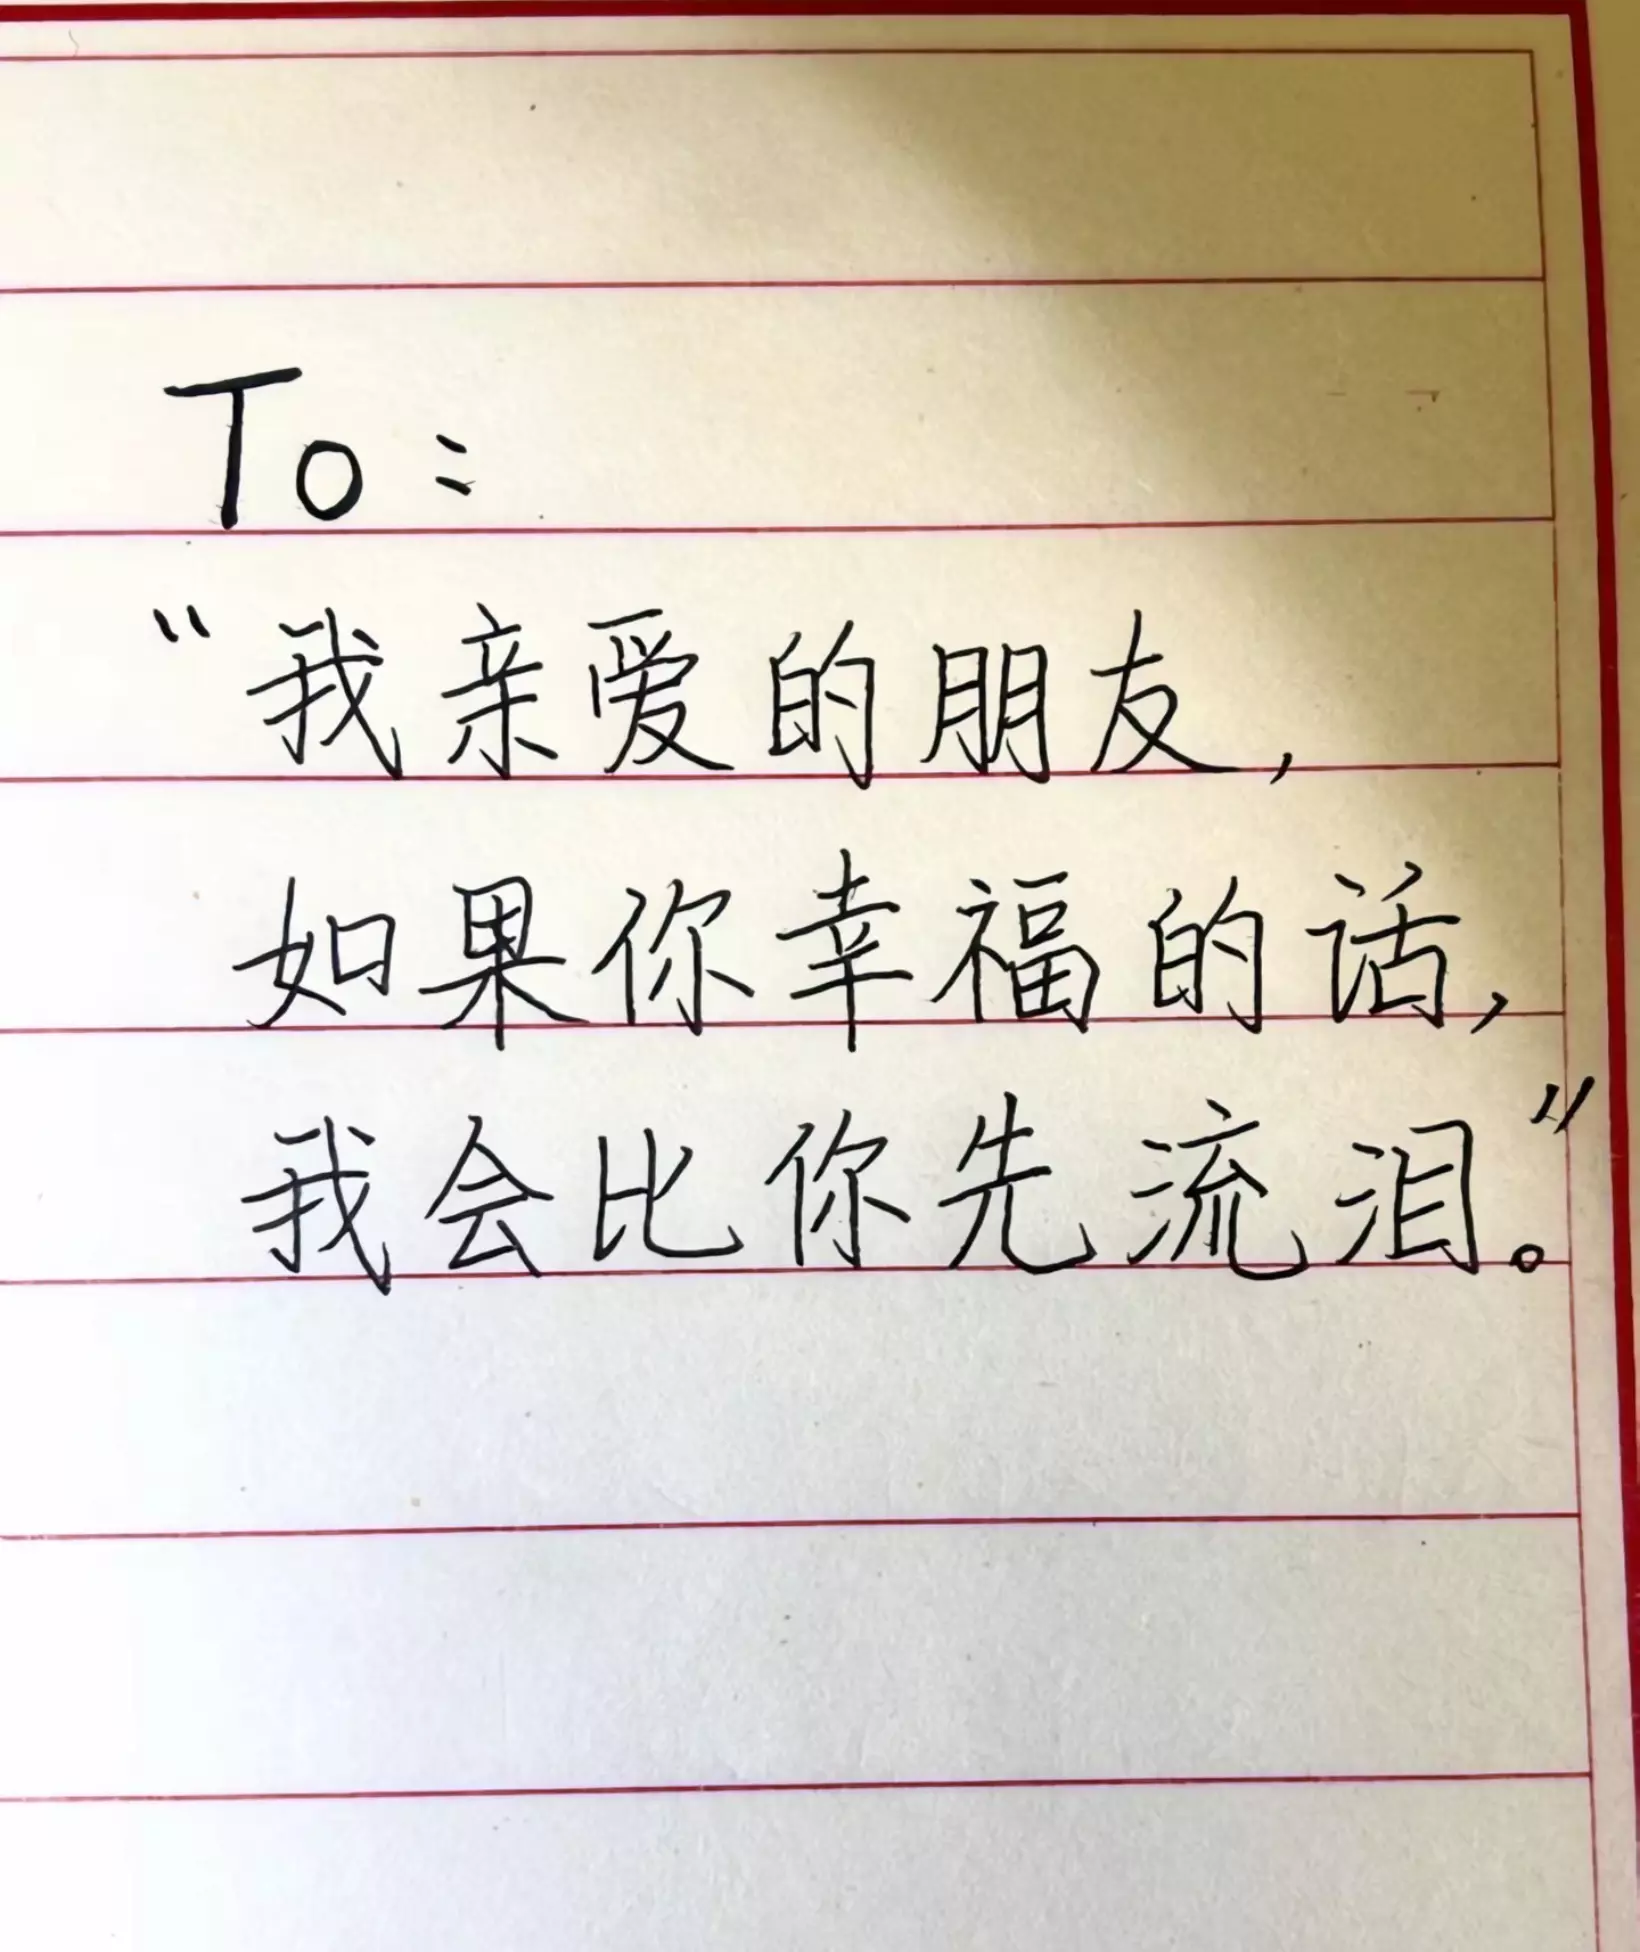 To：
“我亲爱的朋友，
如果你幸福的话，
我会比你先流泪。”